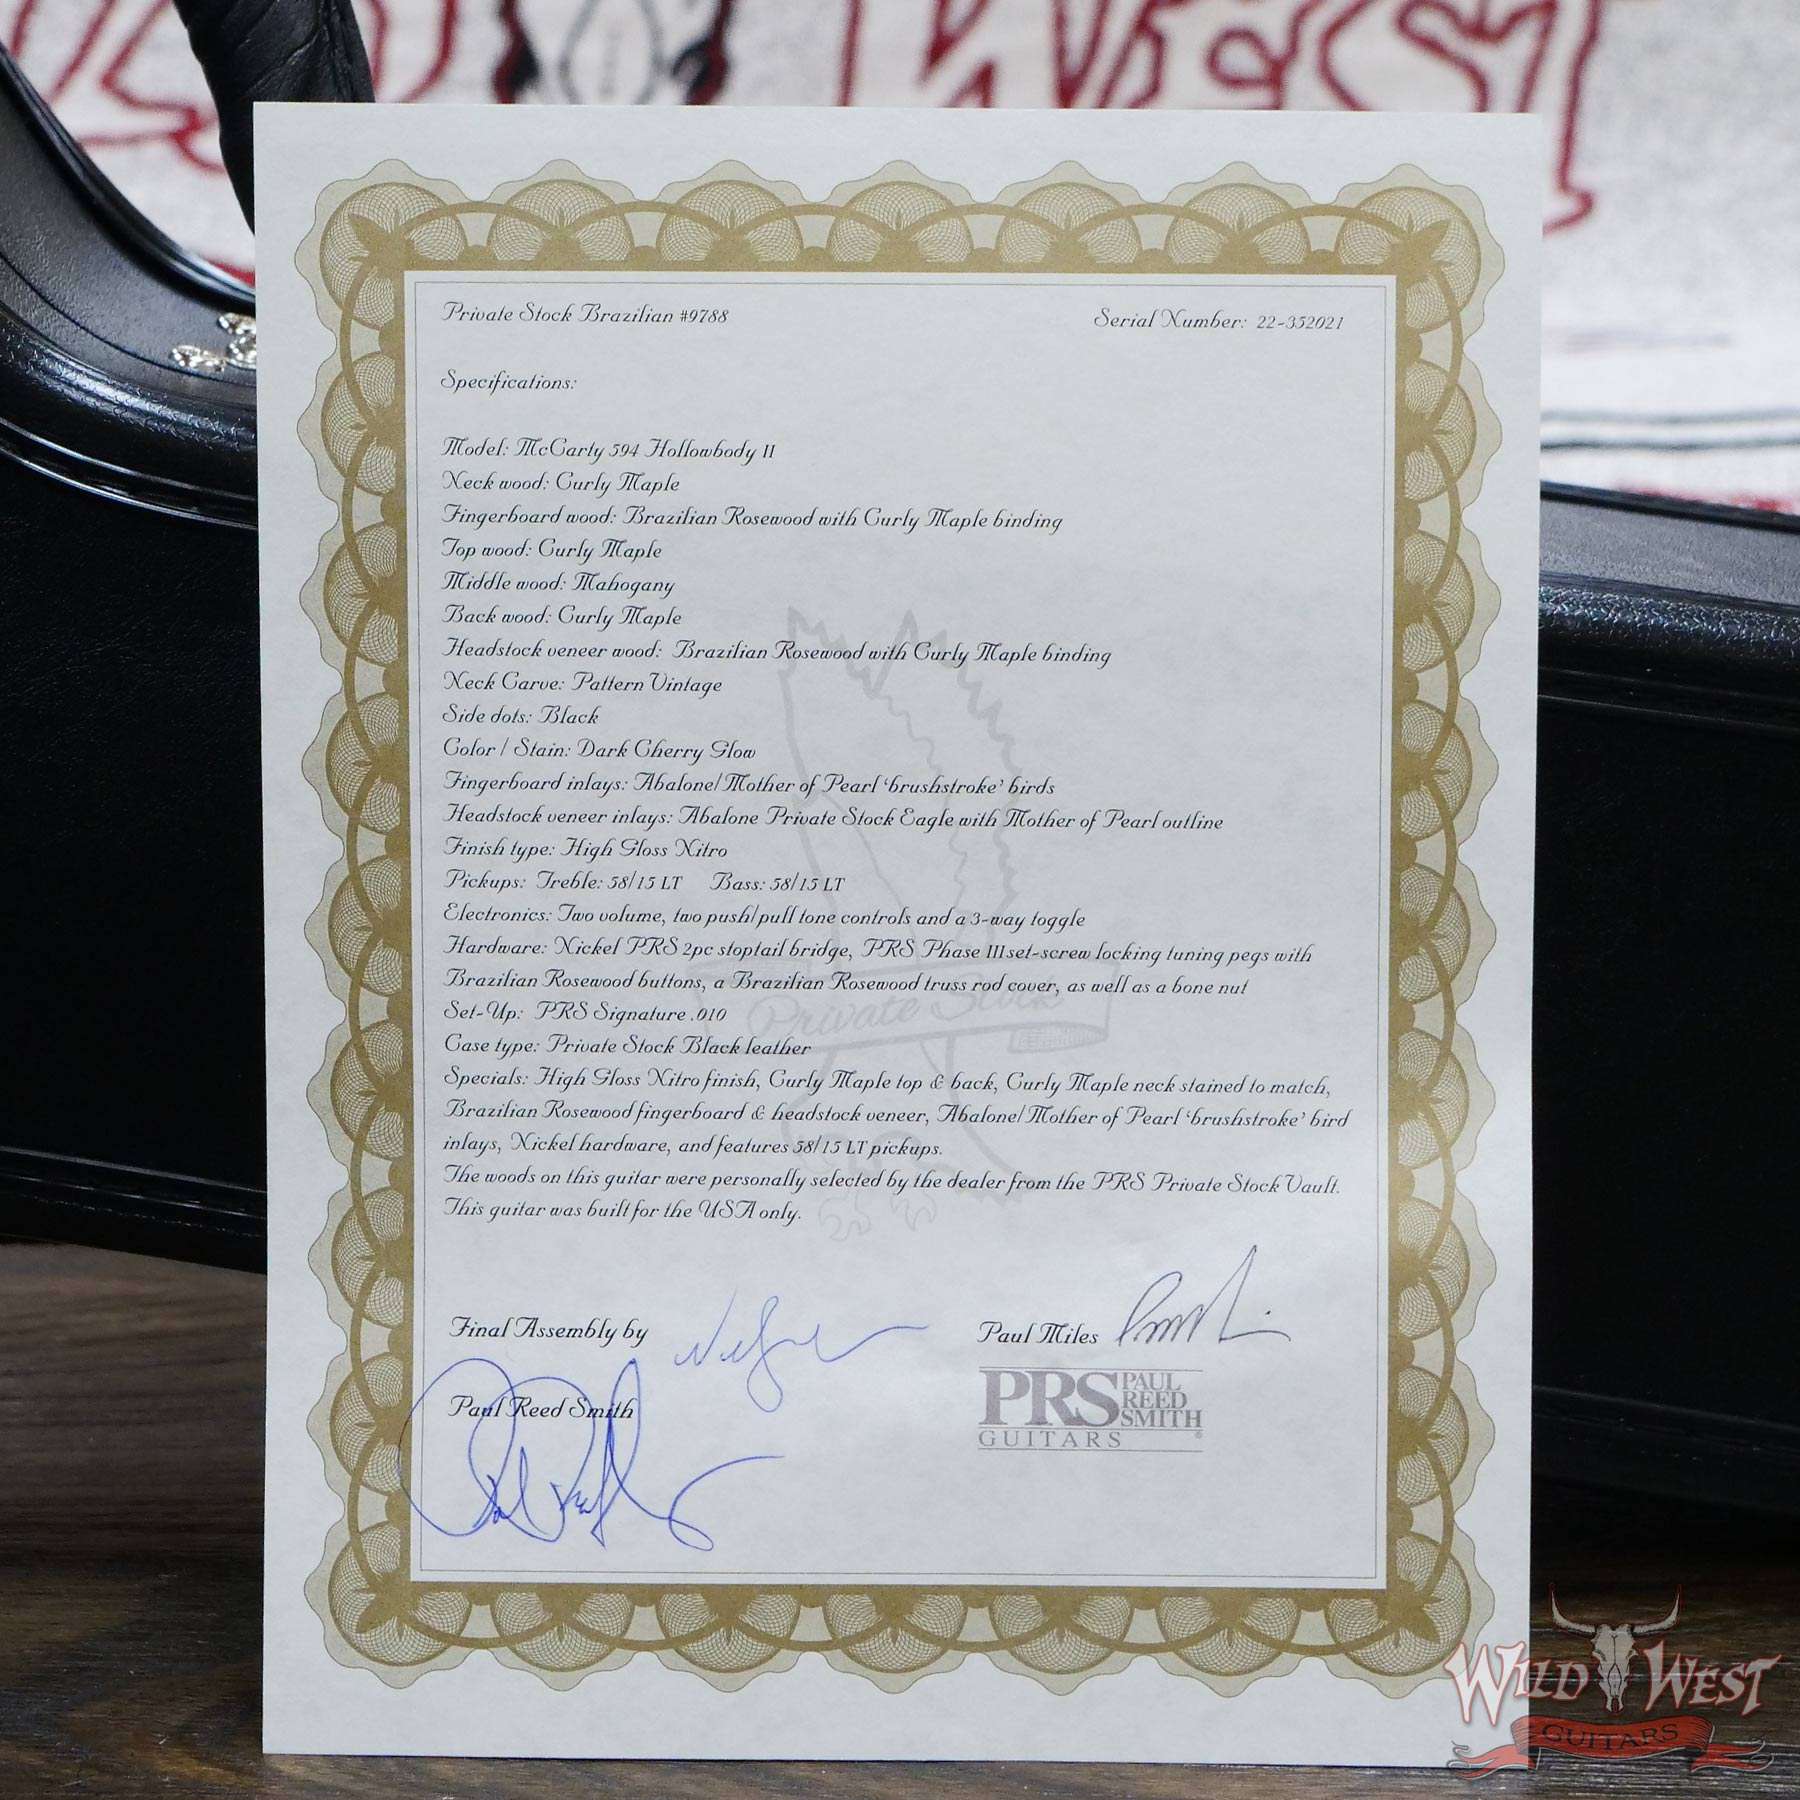 WEST
Private Stock Brazilian #9788 Serial Number: 22-352021
Specifications:
Model: McCarty 594 Hollowbody II
Neck wood: Curly Maple
Fingerboard wood: Brazilian Rosewood with Curly Maple binding
Top wood: Curly Maple
Middle wood: Mahogany
Back wood: Curly Maple
Headstock veneer wood: Brazilian Rosewood with Curly Maple binding
Neck Carve: Pattern Vintage
Side dots: Black
Color / Stain: Dark Cherry Glow
Fingerboard inlays: Abalone/Mother of Pearl ‘brushstroke’ birds
Headstock veneer inlays: Abalone Private Stock Eagle with Mother of Pearl outline
Finish type: High Gloss Nitro
Pickups: Treble: 58/15 LT Bass: 58/15 LT
Electronics: Two volume, two push/pull tone controls and a 3-way toggle
Hardware: Nickel PRS 2pc stoptail bridge, PRS Phase III set-screw locking tuning pegs with
Brazilian Rosewood buttons, a Brazilian Rosewood truss rod cover, as well as a bone nut
Private Stock
Set-Up: PRS Signature .010
Case type: Private Stock Black leather
Specials: High Gloss Nitro finish, Curly Maple top & back, Curly Maple neck stained to match,
Brazilian Rosewood fingerboard & headstock veneer, Abalone/Mother of Pearl ‘brushstroke’ bird
inlays, Nickel hardware, and features 58/15 LT pickups.
The woods on this guitar were personally selected by the dealer from the PRS Private Stock Vault.
This guitar was built for the USA only.
Final Assembly by
Paul Miles
Paul Reed Smith
PRS PAUL REED SMITH®
GUITARS
WILD WEST
GUITARS